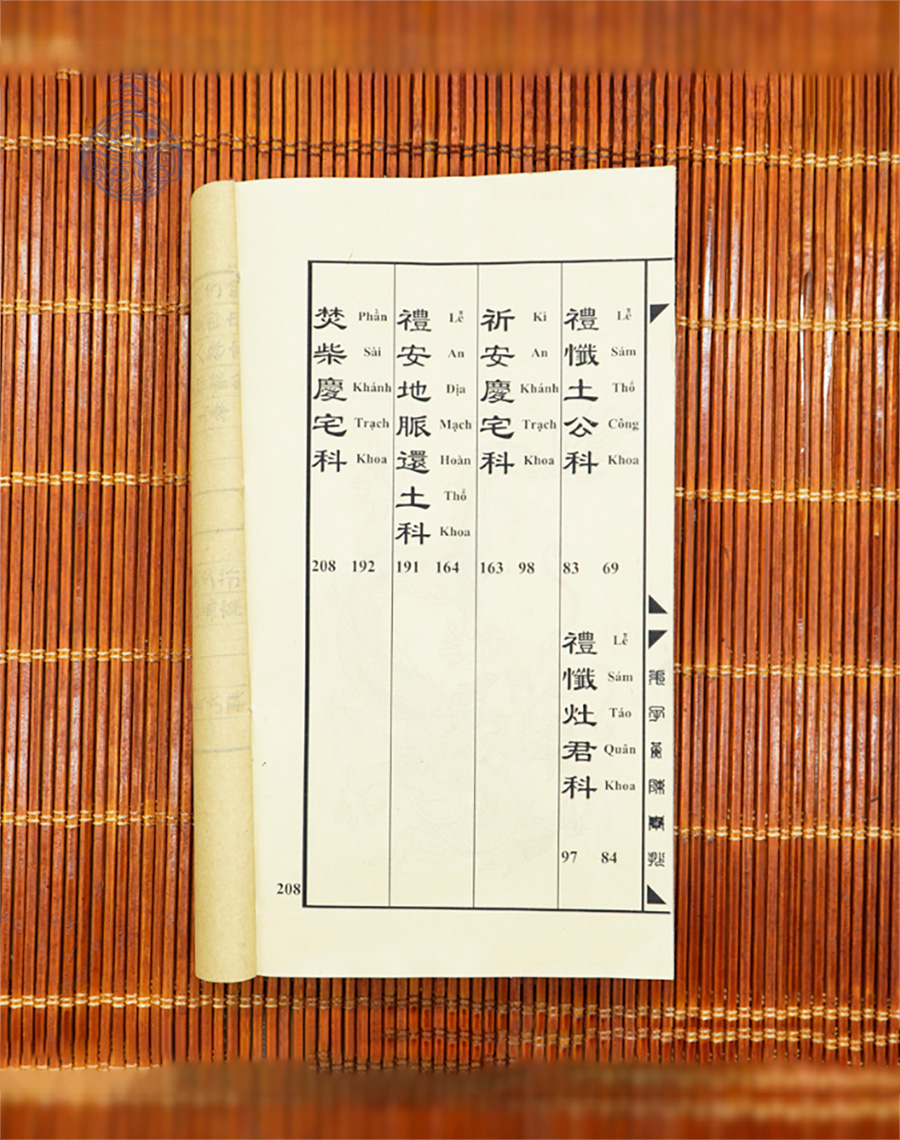 禮懺土公科
Lễ Sám Thổ Công Khoa
83 69
禮懺灶君科
Lễ Sám Táo Quân Khoa
97 84
祈安慶宅科
Kì An Khánh Trạch Khoa
163 98
禮安地脈還土科
Lễ An Địa Mạch Hoàn Thổ Khoa
191 164
焚柴慶宅科
Phần Sài Khánh Trạch Khoa
208 192
208